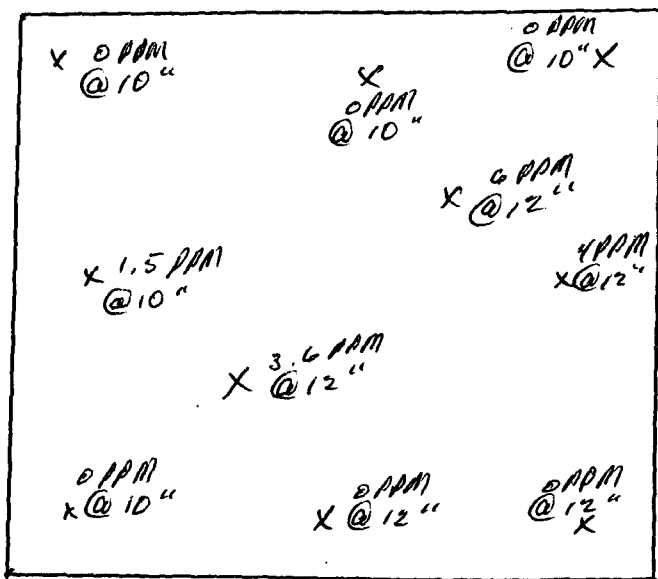 X 0 PPM
@ 10"
0 PPM
@ 10" X
X
0 PPM
@ 10"
X 6 PPM
@ 12"
X 1.5 PPM
@ 10"
4 PPM
X @ 12"
X 3.6 PPM
@ 12"
0 PPM
X @ 10"
0 PPM
X @ 12"
0 PPM
@ 12"
X